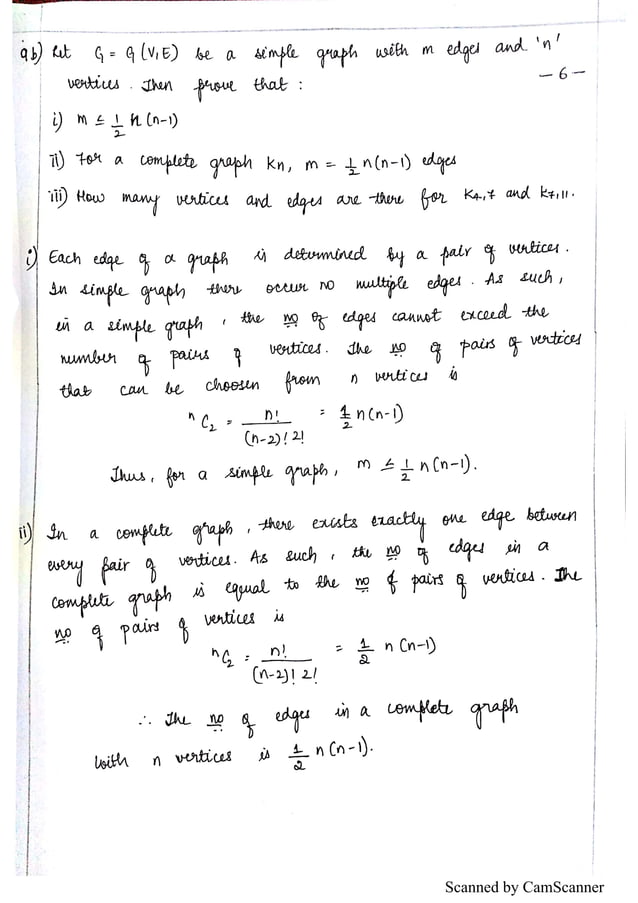 9b) Let G = G(V,E) be a simple graph with m edges and 'n'
vertices. Then prove that :
- 6 -
i) m ≤ 1/2 n (n-1)
ii) For a complete graph Kn, m = 1/2 n(n-1) edges
iii) How many vertices and edges are there for K4,7 and K7,11.
i) Each edge of a graph is determined by a pair of vertices.
In simple graph there occur no multiple edges. As such,
in a simple graph, the no of edges cannot exceed the
number of pairs of vertices. The no of pairs of vertices
that can be choosen from n vertices is
nC2 = n!/(n-2)! 2! = 1/2 n(n-1)
Thus, for a simple graph, m ≤ 1/2 n(n-1).
ii) In a complete graph, there exists exactly one edge between
every pair of vertices. As such, the no of edges in a
complete graph is equal to the no of pairs of vertices. The
no of pairs of vertices is
nC2 = n!/(n-2)! 2! = 1/2 n (n-1)
∴ The no of edges in a complete graph
with n vertices is 1/2 n(n-1).
Scanned by CamScanner